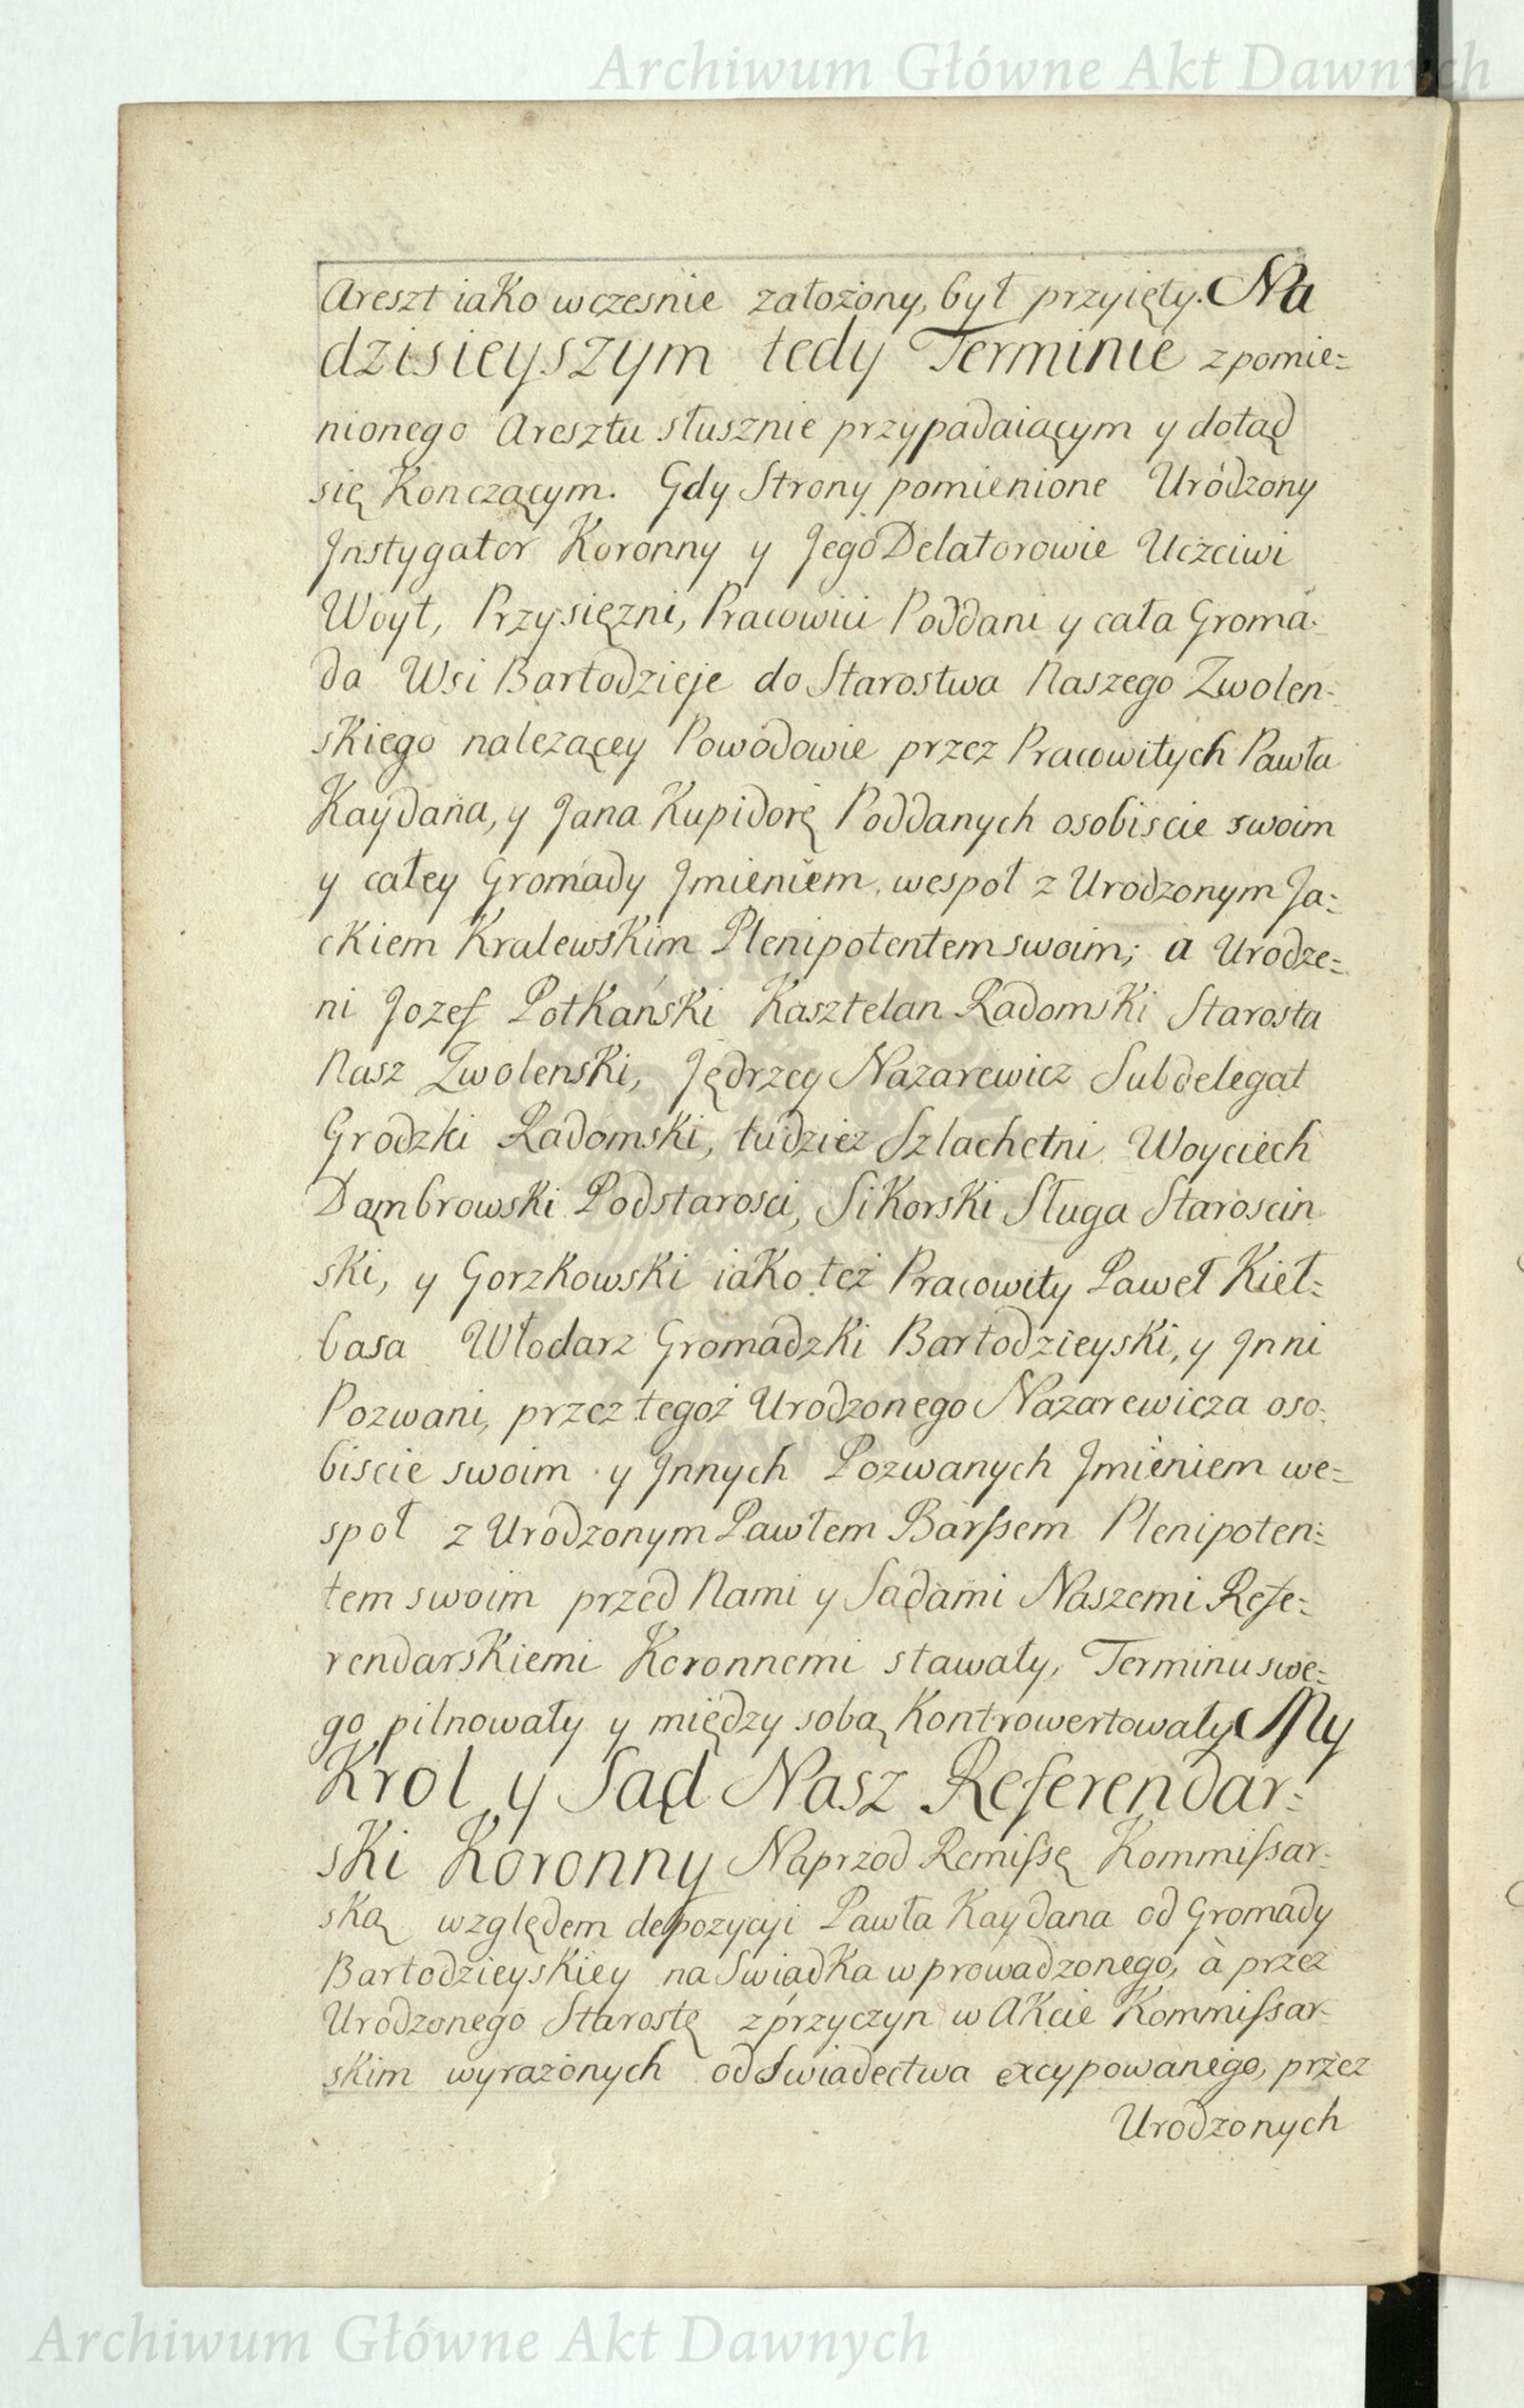 Archiwum Główne Akt Dawnych
Areszt iako wczesnie założony, był przyięty. Na
dzisieyszym tedy Terminie z pomie=
nionego Aresztu słusznie przypadaiącym y dotąd
się Konczącym. Gdy Strony pomienione Urodzony
Jnstygator Koronny y Jego Delatorowie Uczciwi
Woyt, Przysięzni, Pracowici Poddani y cała Groma=
da Wsi Bartodzieje do Starostwa Naszego Zwolen=
skiego nalezącey Powodowie przez Pracowitych Pawła
Kaydana, y Jana Kupidorę Poddanych osobiscie swoim
y całey Gromady Jmieniem, wespoł z Urodzonym Ja=
ckiem Kralewskim Plenipotentem swoim; a Urodze=
ni Jozef Potkański Kasztelan Radomski Starosta
Nasz Zwolenski, Jędrzey Nazarewicz Subdelegat
Grodzki Radomski, tudziez Szlachetni Woyciech
Dąmbrowski Podstarosci, Sikorski Sługa Staroscin
ski, y Gorzkowski iako też Pracowity Paweł Kieł=
basa Włodarz Gromadzki Bartodzieyski, y Jnni
Pozwani, przez tegoż Urodzonego Nazarewicza oso=
biscie swoim y Jnnych Pozwanych Jmieniem we=
społ z Urodzonym Pawłem Barſsem Plenipoten=
tem swoim przed Nami y Sądami Naszemi Refe=
rendarskiemi Koronnemi stawały, Terminu swe=
go pilnowały y między sobą Kontrowertowały My
Krol y Sąd Nasz Referendar=
ski Koronny Naprzod Remiſsę Kommiſsar=
ską względem depozycyi Pawła Kaydana od Gromady
Bartodzieyskiey na Swiadka wprowadzonego, à przez
Urodzonego Starostę z przyczyn w Akcie Kommiſsar=
skim wyrażonych od Swiadectwa excypowanego, przez
Urodzonych
Archiwum Główne Akt Dawnych